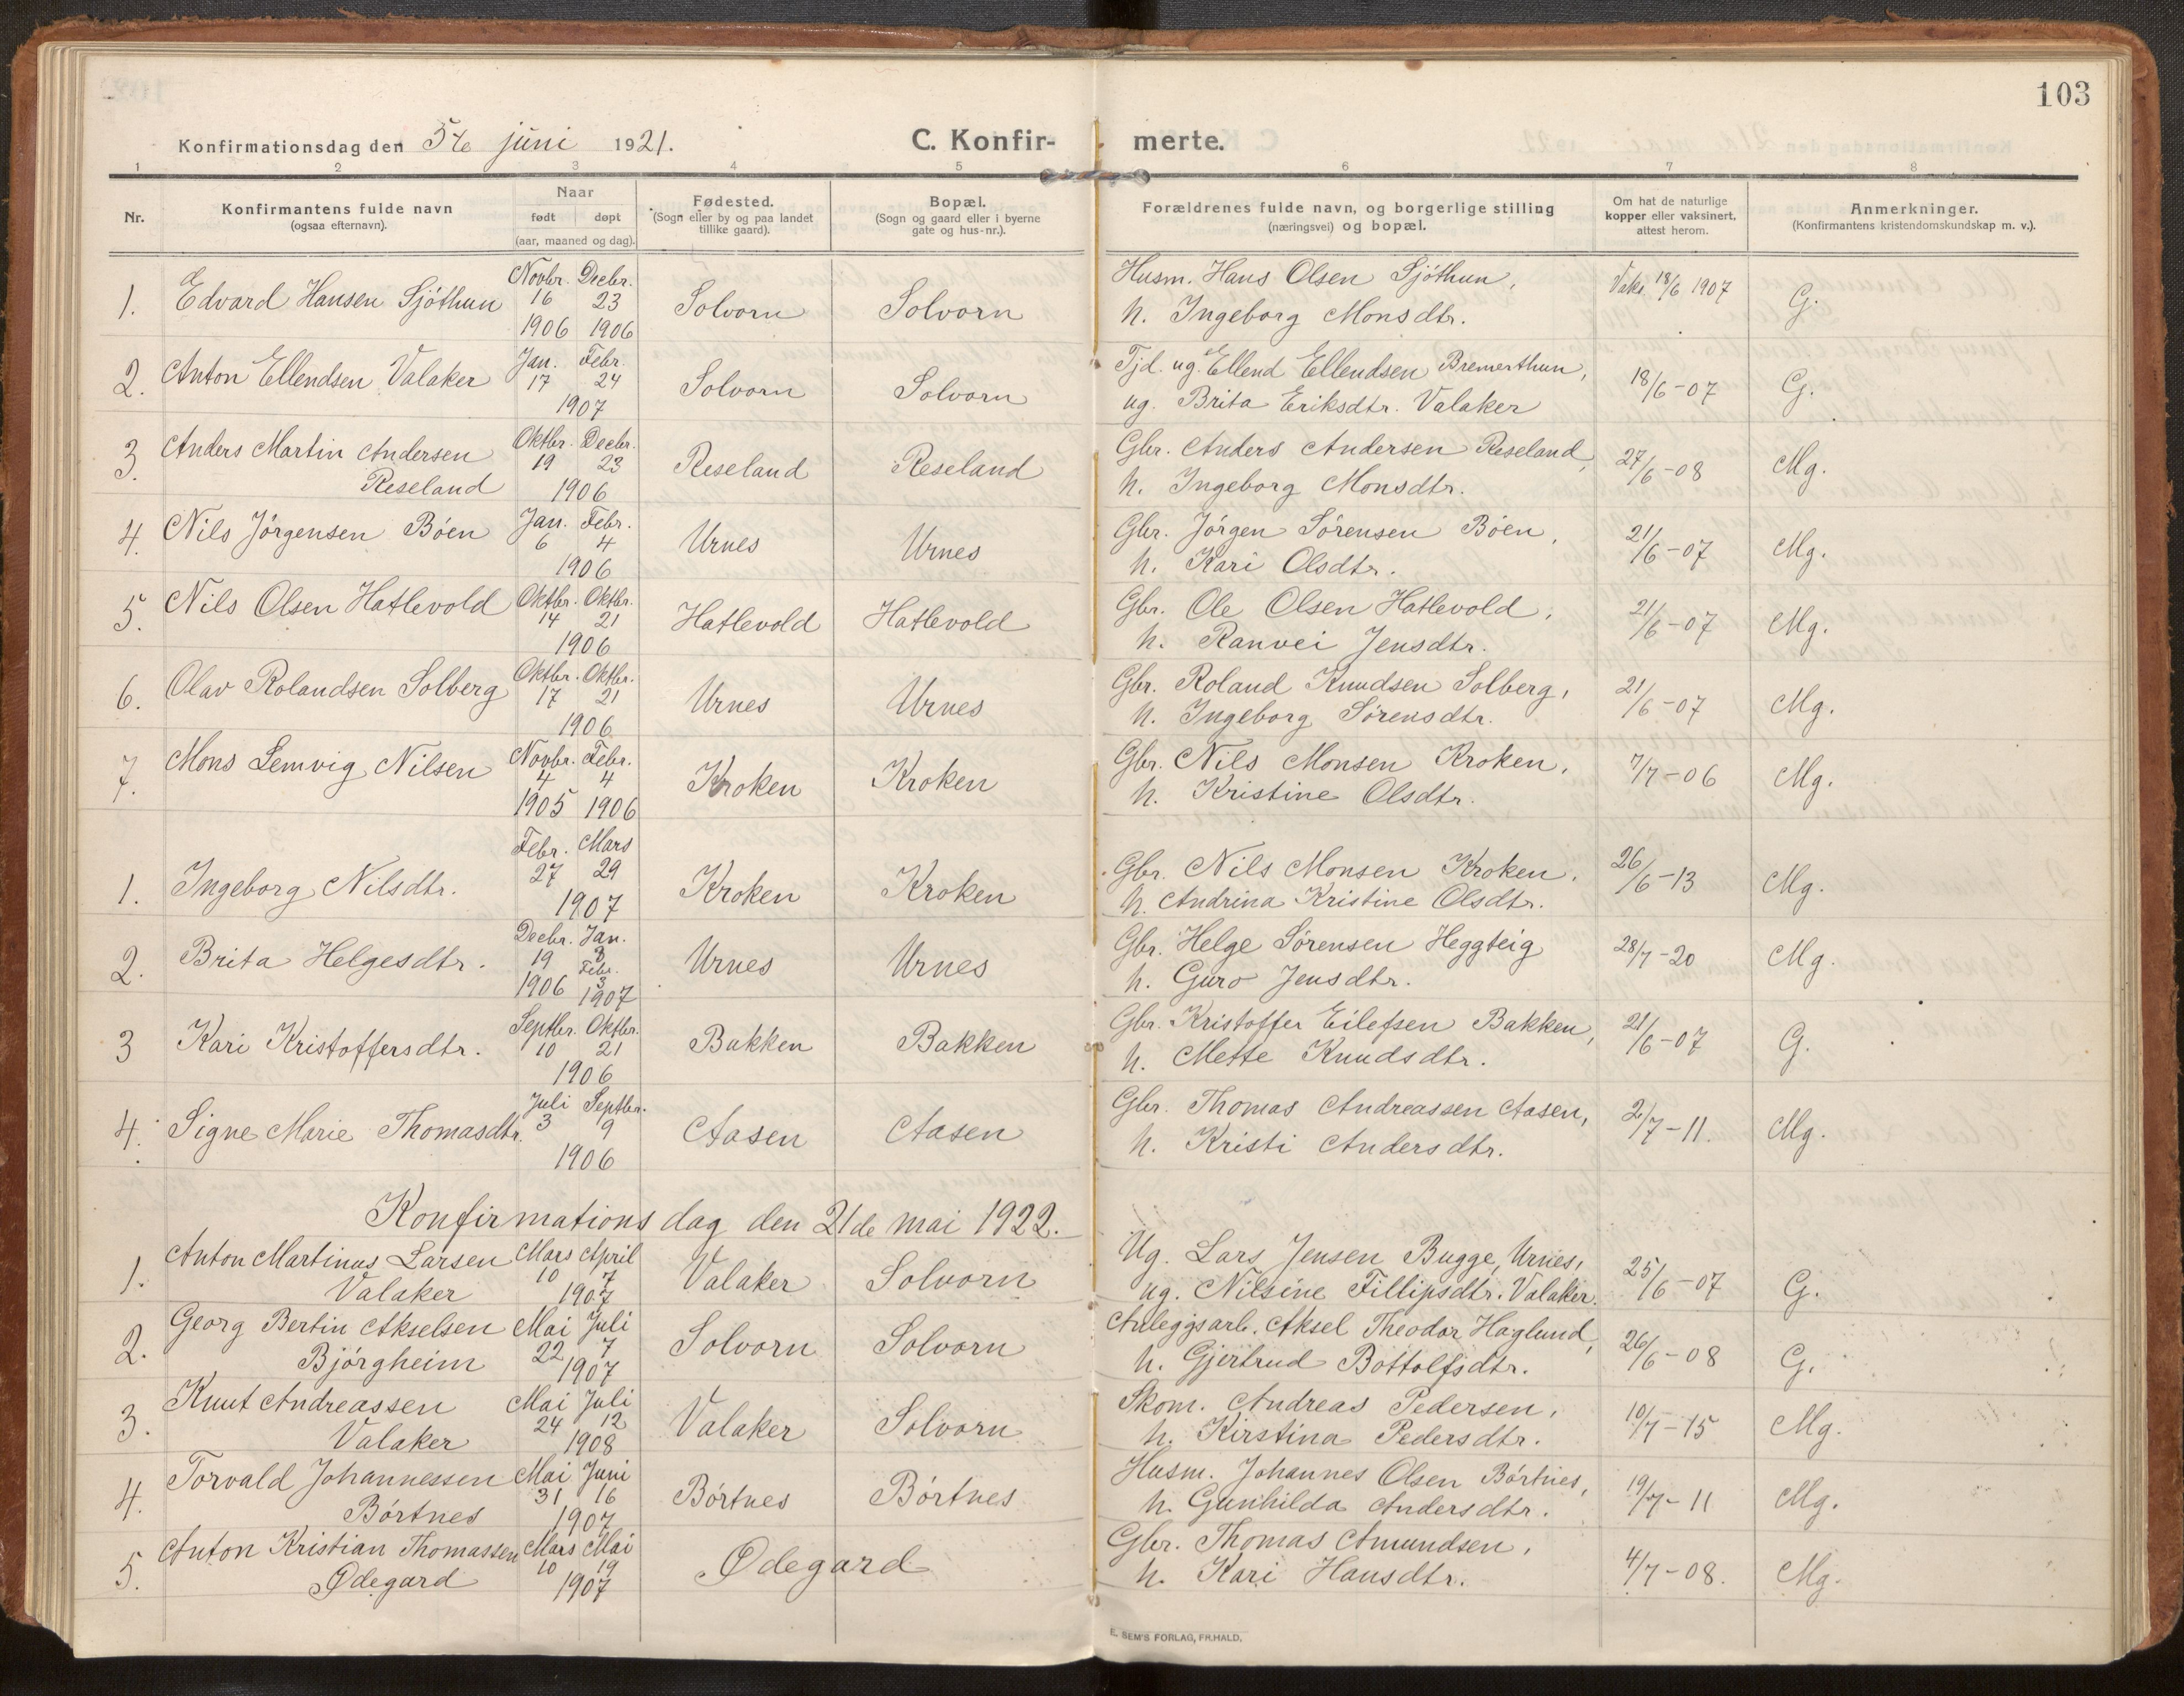 103
Konfirmationsdag den 5te juni 1921.
C. Konfir- merte.
1 2 3 4 5 6 7 8
Nr.
Konfirmantens fulde navn
(ogsaa efternavn).
Naar
født døpt
(aar, maaned og dag).
Fødested.
(Sogn eller by og paa landet
tillike gaard).
Bopæl.
(Sogn og gaard eller i byerne
gate og hus-nr.).
Forældrenes fulde navn, og borgerlige stilling
(næringsvei) og bopæl.
Om hat de naturlige
kopper eller vaksinert,
attest herom.
Anmerkninger.
(Konfirmantens kristendomskundskap m. v.).
Novbr. Decbr. Husm. Hans Olsen Sjøthun,
1. Edvard Hansen Sjøthun 16 23 Solvorn Solvorn Vaks. 18/6 1907 G.
1906 1906 h. Ingeborg Monsdtr.
Jan. Febr. Tjd. ug. Ellend Ellendsen Bremerthun,
2. Anton Ellendsen Valaker 17 24 Solvorn Solvorn 18/6-07 G.
1907 ug. Brita Eriksdtr. Valaker
Oktbr. Decbr. Gbr. Anders Andersen Reseland,
3. Anders Martin Andersen 19 23 Reseland Reseland 27/6-08 Mg.
Reseland 1906 h. Ingeborg Monsdtr.
Jan. Febr. Gbr. Jørgen Sørensen Bøen,
4. Nils Jørgensen Bøen 6 4 Urnes Urnes 21/6-07 Mg.
1906 h. Kari Olsdtr.
Oktbr. Oktbr. Gbr. Ole Olsen Hatlevold,
5. Nils Olsen Hatlevold 14 21 Hatlevold Hatlevold 21/6-07 Mg.
1906 h. Ranvei Jensdtr.
Oktbr. Oktbr. Gbr. Roland Knudsen Solberg,
6. Olav Rolandsen Solberg 17 21 Urnes Urnes 21/6-07 Mg.
1906 h. Ingeborg Sørensdtr.
Novbr. Febr. Gbr. Nils Monsen Kroken,
7. Mons Lemvig Nilsen 4 4 Kroken Kroken 7/7-06 Mg.
1905 1906 h. Kristine Olsdtr.
Febr. Mars Gbr. Nils Monsen Kroken,
1. Ingeborg Nilsdtr. 27 29 Kroken Kroken 26/6-13 Mg.
1907 h. Andrina Kristine Olsdtr.
Decbr. Jan. Gbr. Helge Sørensen Heggteig
2. Brita Helgesdtr. 19 Febr. 3 Urnes Urnes 28/7-20 Mg.
1906 1907 h. Guro Jensdtr.
Septbr. Oktbr. Gbr. Kristoffer Eilefsen Bakken,
3 Kari Kristoffersdtr. 10 21 Bakken Bakken 21/6-07 G.
1906 h. Mette Knudsdtr.
Juli Septbr. Gbr. Thomas Andreassen Aasen,
4. Signe Marie Thomasdtr. 3 9 Aasen Aasen 2/7-11. Mg.
1906 h. Kristi Andersdtr.
Konfirmationsdag den 21de mai 1922.
Anton Martinus Larsen Mars April Ug. Lars Jensen Bugge, Urnes,
1. 10 7 Valaker Solvorn 25/6-07 G.
Valaker 1907 ug. Nilsine Fillipsdtr. Valaker.
Georg Bertin Akselsen Mai Juli Anleggsarb. Aksel Theodor Haglund,
2. 22 7 Solvorn Solvorn 26/6-08 G.
Bjørgheim 1907 h. Gjertrud Bottolfsdtr.
Knut Andreassen Mai Juli Skom. Andreas Pedersen,
3. 24 12 Valaker Solvorn 10/7-15 Mg.
Valaker 1908 h. Kirstina Pedersdtr.
Torvald Johannessen Mai Juni Husm. Johannes Olsen Børtnes,
4. 31 16 Børtnes Børtnes 19/7-11 Mg.
Børtnes 1907 h. Gunhilda Andersdtr.
Anton Kristian Thomassen Mars Mai Gbr. Thomas Amundsen,
5. 10 19 Ødegard 4/7-08. Mg.
Ødegard 1907 h. Kari Hansdtr.
E. SEM'S FORLAG, FR.HALD.